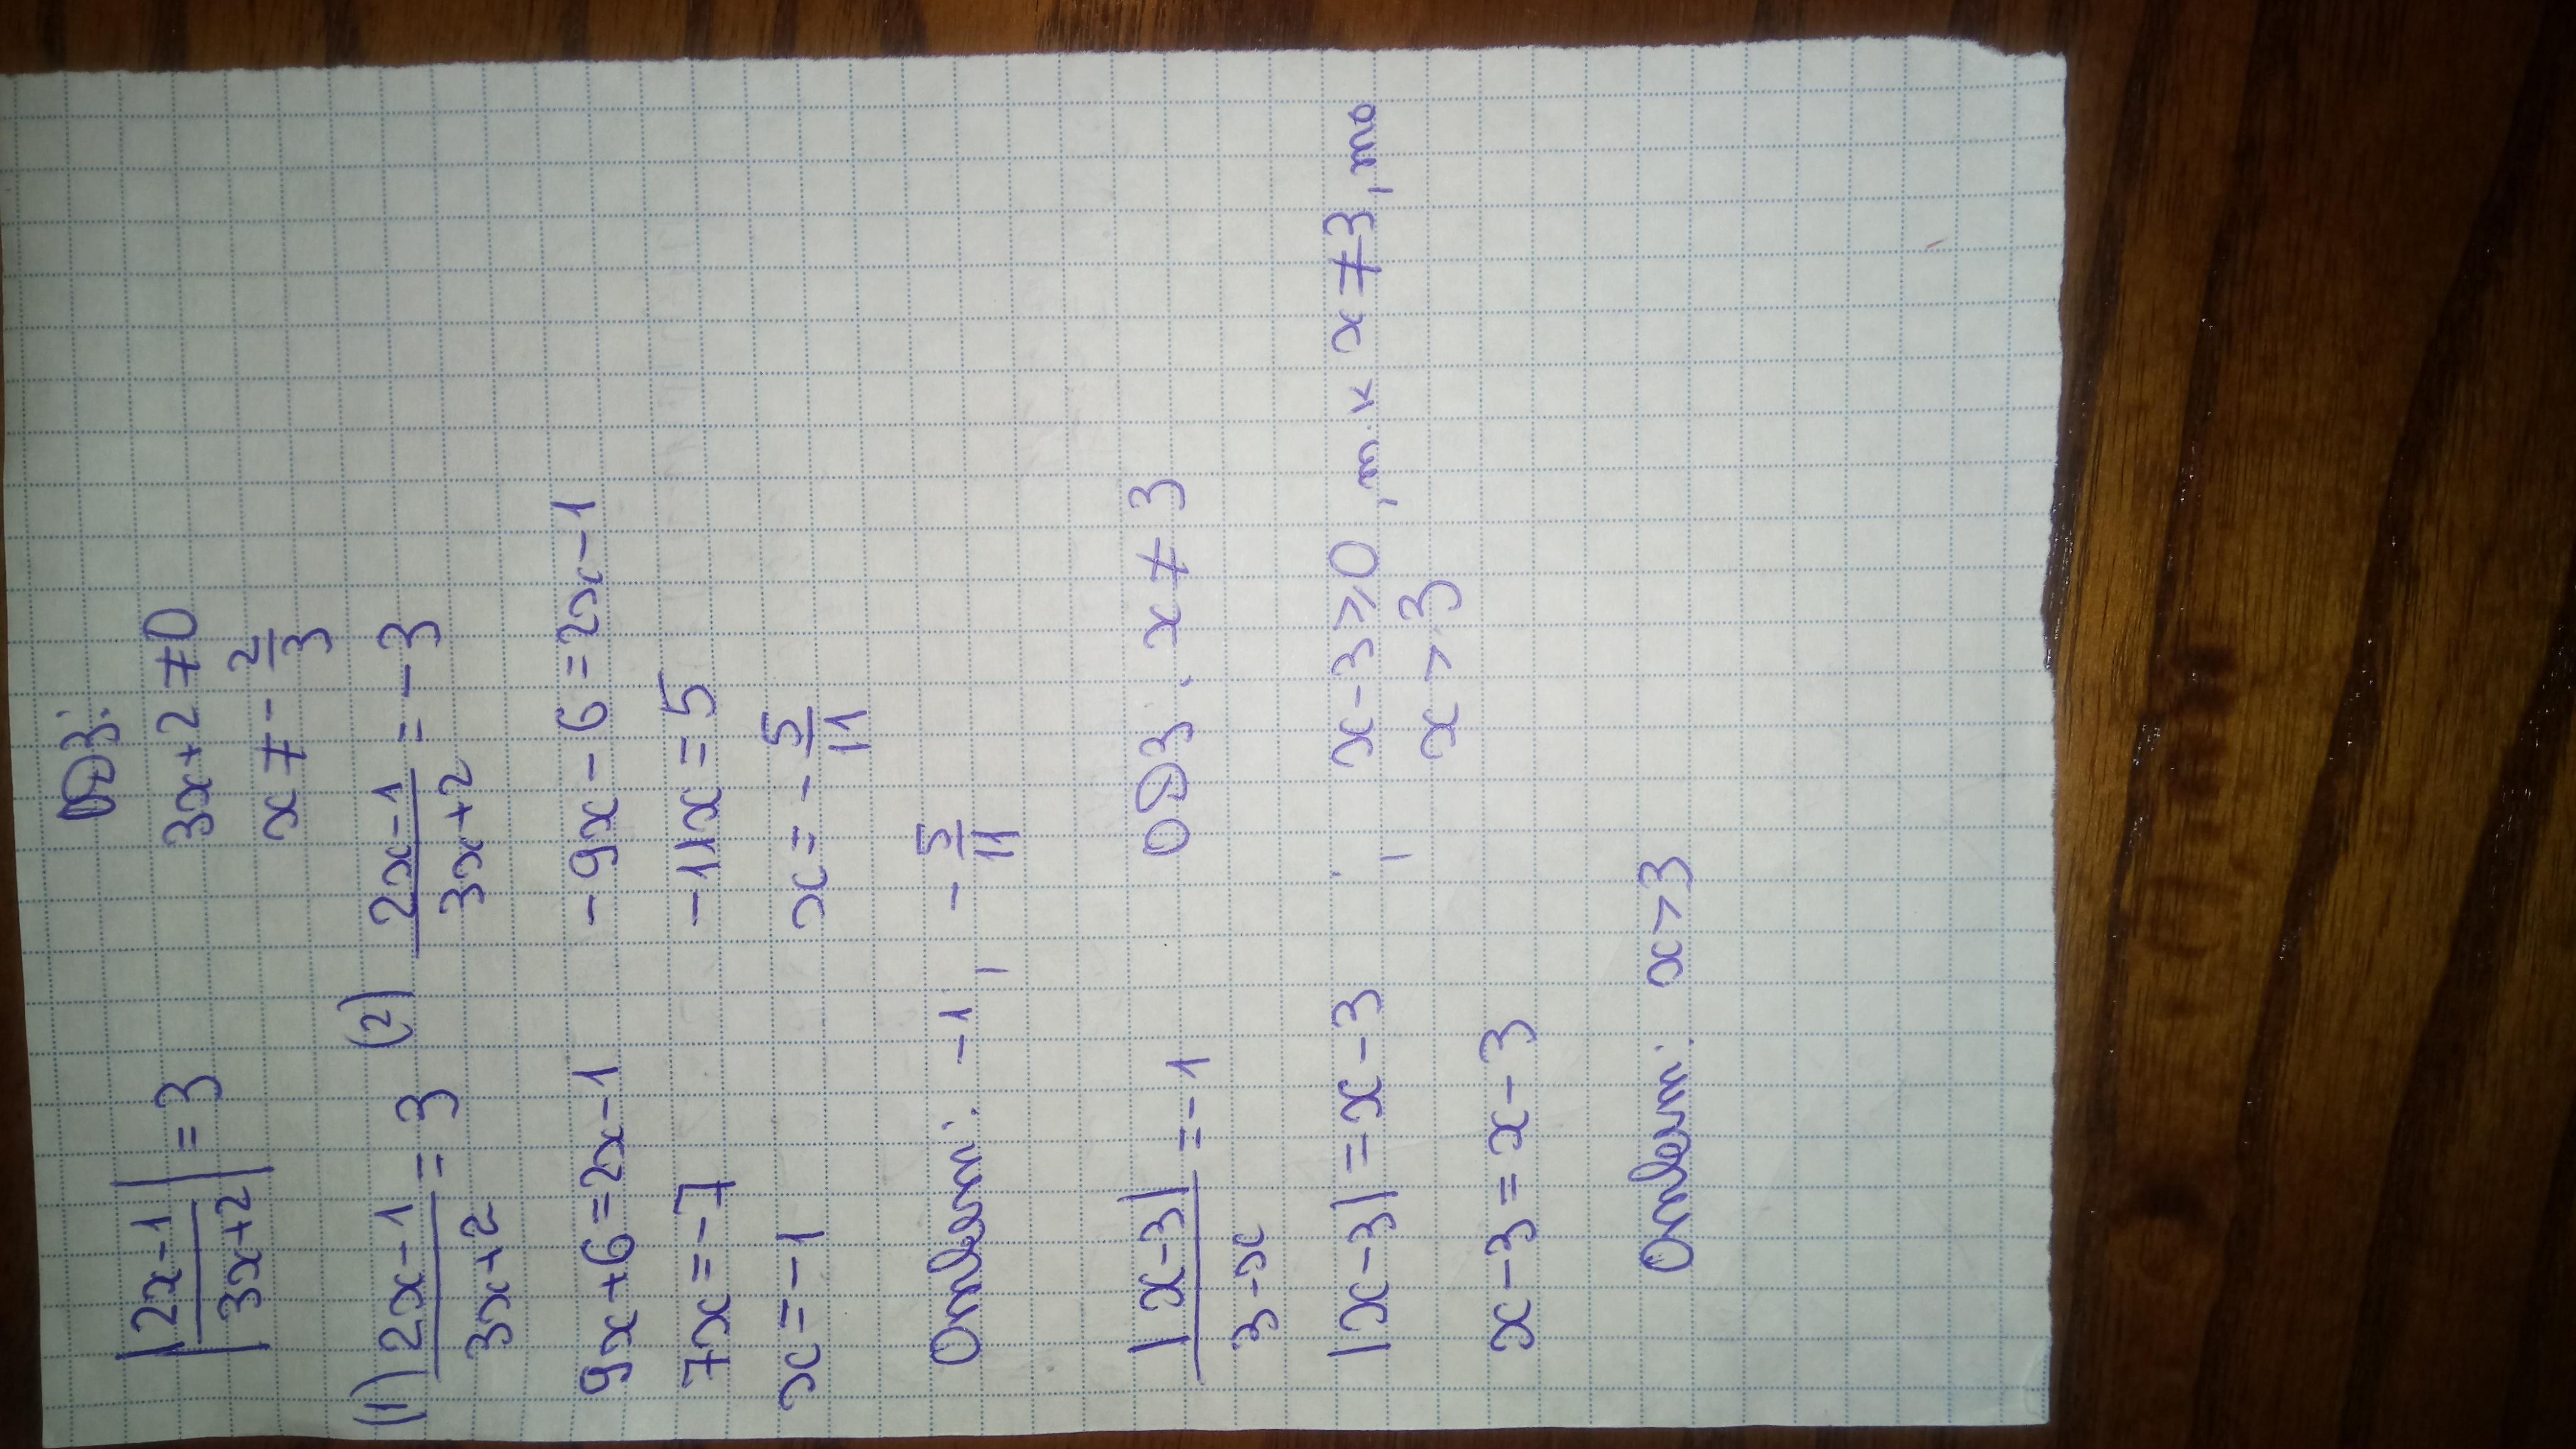 |2x-1/3x+2| = 3 ОДЗ:
3x+2≠0
x≠-2/3
(1) 2x-1/3x+2 = 3 (2) 2x-1/3x+2 = -3
9x+6=2x-1 -9x-6=2x-1
7x=-7 -11x=5
x=-1 x=-5/11
Ответ: -1, -5/11
|x-3|/3-x = -1 ОДЗ. x≠3
|x-3|=x-3 x-3⩾0, т.к x≠3, то
x>3
x-3=x-3
Ответ: x>3